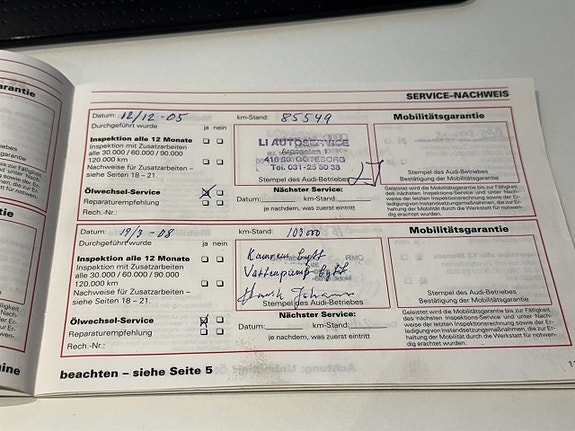 SERVICE-NACHWEIS
Datum: 12/12-05 km-Stand: 85549
Durchgeführt wurde ja nein
Inspektion alle 12 Monate
Inspektion mit Zusatzarbeiten
alle 30.000 / 60.000 / 90.000
120.000 km
Nachweise für Zusatzarbeiten –
siehe Seiten 18 – 21.
Ölwechsel-Service
Reparaturempfehlung
Rech.-Nr.:
LI AUTOSERVICE
GÖTEBORG
Tel. 031-25 50 38
Stempel des Audi-Betriebes
Nächster Service:
Datum: km-Stand:
je nachdem, was zuerst eintritt
Mobilitätsgarantie
Stempel des Audi-Betriebes
Bestätigung der Mobilitätsgarantie
Geleistet wird die Mobilitätsgarantie bis zur Fälligkeit
des nächsten Inspektions-Service und unter Nach-
weise der letzten Inspektionsrechnung sowie der Er-
ledigung von Instandsetzungsmaßnahmen, die zur Er-
haltung der Mobilität durch die Werkstatt für notwen-
dig erachtet wurden.
Datum: 19/3-08 km-Stand: 103000
Durchgeführt wurde ja nein
Inspektion alle 12 Monate
Inspektion mit Zusatzarbeiten
alle 30.000 / 60.000 / 90.000
120.000 km
Nachweise für Zusatzarbeiten –
siehe Seiten 18 – 21.
Ölwechsel-Service
Reparaturempfehlung
Rech.-Nr.:
Kamrem bytt
Vattenpump bytt
Stempel des Audi-Betriebes
Nächster Service:
Datum: km-Stand:
je nachdem, was zuerst eintritt
Mobilitätsgarantie
Stempel des Audi-Betriebes
Bestätigung der Mobilitätsgarantie
Geleistet wird die Mobilitätsgarantie bis zur Fälligkeit
des nächsten Inspektions-Service und unter Nach-
weise der letzten Inspektionsrechnung sowie der Er-
ledigung von Instandsetzungsmaßnahmen, die zur Er-
haltung der Mobilität durch die Werkstatt für notwen-
dig erachtet wurden.
beachten – siehe Seite 5